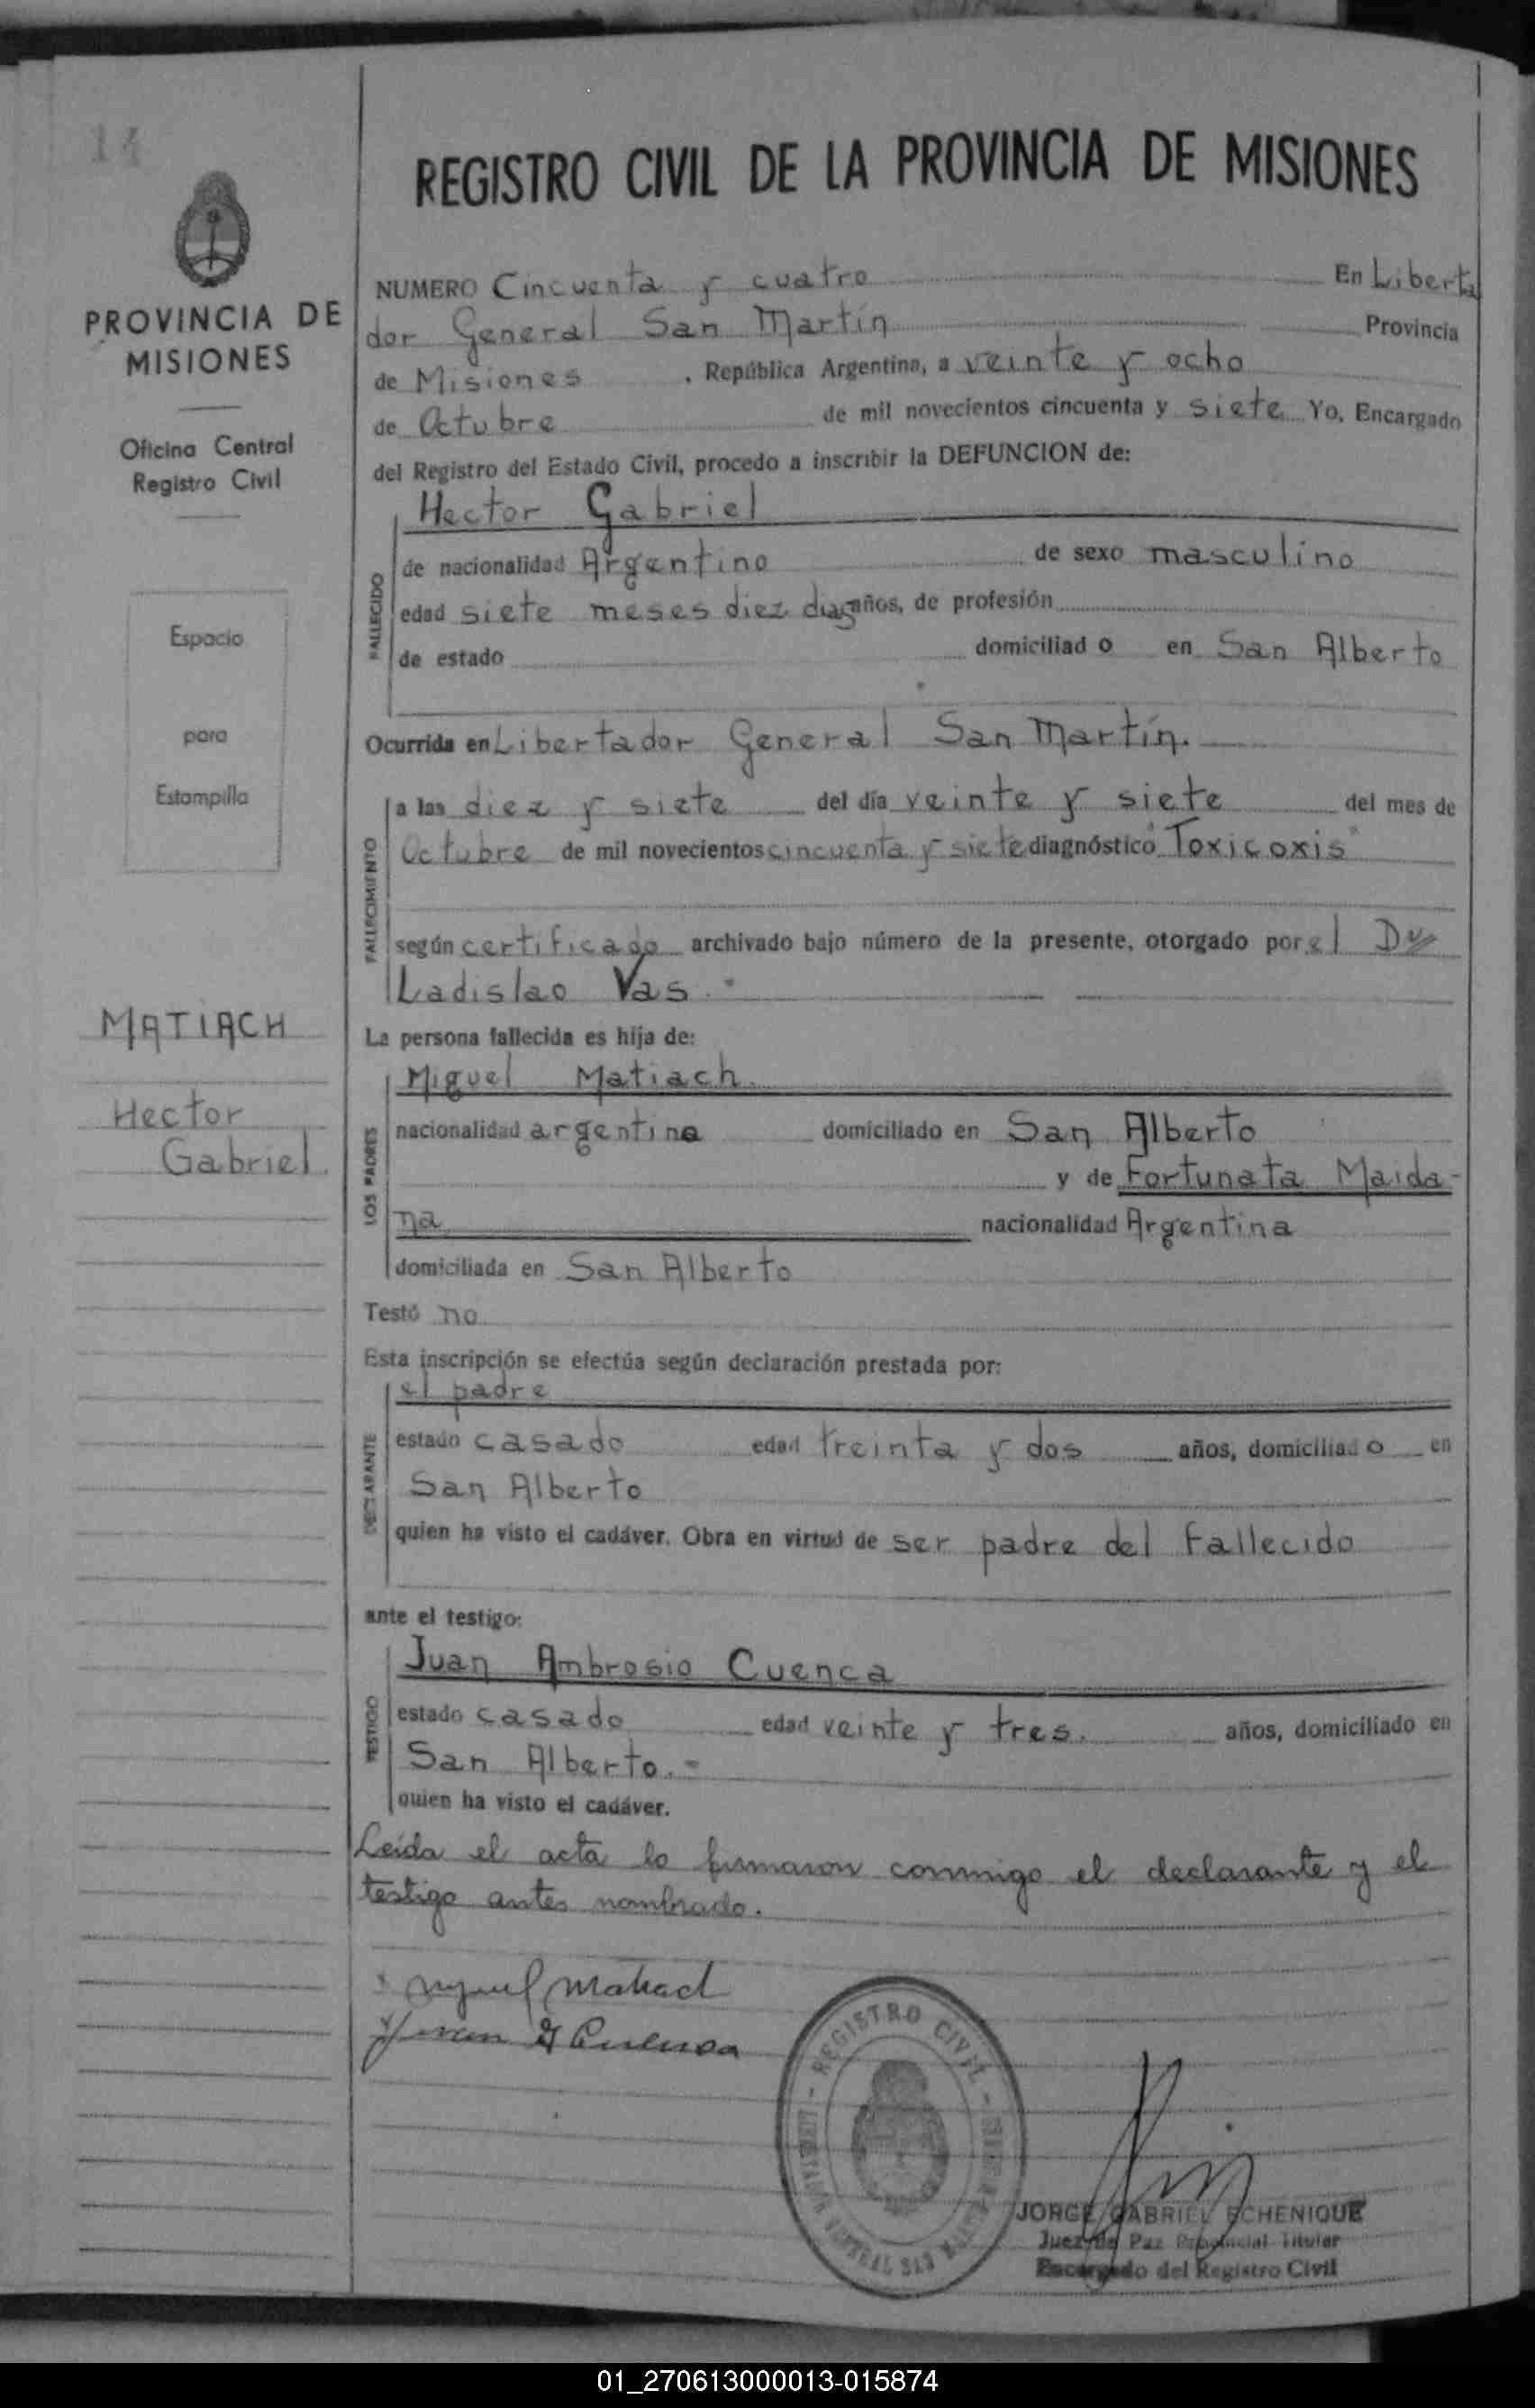 14
PROVINCIA DE
MISIONES
Oficina Central
Registro Civil
Espacio
para
Estampilla
MATIACH
Hector
Gabriel
REGISTRO CIVIL DE LA PROVINCIA DE MISIONES
NUMERO Cincuenta y cuatro En Liberta
dor General San Martín Provincia
de Misiones , República Argentina, a veinte y ocho
de Octubre de mil novecientos cincuenta y siete Yo, Encargado
del Registro del Estado Civil, procedo a inscribir la DEFUNCION de:
Hector Gabriel
FALLECIDO
de nacionalidad Argentino de sexo masculino
edad siete meses diez dias años, de profesión
de estado domiciliad o en San Alberto
Ocurrida en Libertador General San Martín.
FALLECIMIENTO
a las diez y siete del día veinte y siete del mes de
Octubre de mil novecientos cincuenta y siete diagnóstico "Toxicoxis"
según certificado archivado bajo número de la presente, otorgado por el Dr
Ladislao Vas.-
La persona fallecida es hija de:
LOS PADRES
Miguel Matiach
nacionalidad argentina domiciliado en San Alberto
y de Fortunata Maida-
na nacionalidad Argentina
domiciliada en San Alberto
Testó no
Esta inscripción se efectúa según declaración prestada por:
DECLARANTE
el padre
estado casado edad treinta y dos años, domiciliad o en
San Alberto
quien ha visto el cadáver. Obra en virtud de ser padre del Fallecido
ante el testigo:
TESTIGO
Juan Ambrosio Cuenca
estado casado edad veinte y tres. años, domiciliado en
San Alberto.-
quien ha visto el cadáver.
Leída el acta lo firmaron conmigo el declarante y el
testigo antes nombrado.
Miguel Matiach
Juan A Cuenca
REGISTRO CIVIL
JORGE GABRIEL ECHENIQUE
Juez de Paz Provincial Titular
Encargado del Registro Civil
01_270613000013-015874